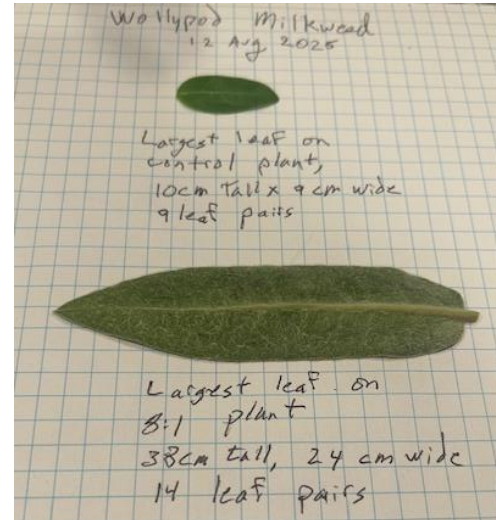 Wollypod Milkweed
12 Aug 2025
Largest leaf on
control plant,
10cm Tall x 9 cm wide
9 leaf pairs
Largest leaf on
8:1 plant
38cm tall, 24 cm wide
14 leaf pairs